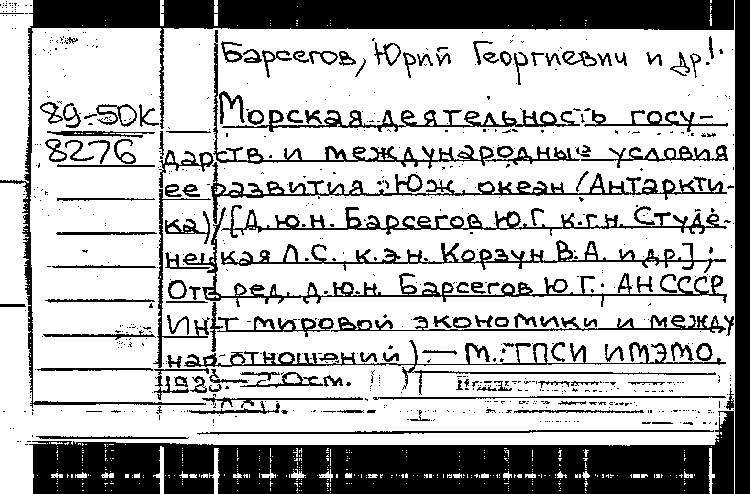 Барсегов, Юрий Георгиевич и др.
89-50К
8276
Морская деятельность госу-
дарств и международные условия
ее развития: Юж. океан (Антаркти-
ка)/[Д.ю.н. Барсегов Ю.Г., к.г.н. Студе-
нецкая Л.С., к.э.н. Корзун В.А. и др.];
Отв. ред. д.ю.н. Барсегов Ю.Г.; АН СССР,
Ин-т мировой экономики и между
нар. отношений) — М.: ТПСИ ИМЭМО,
20 см.